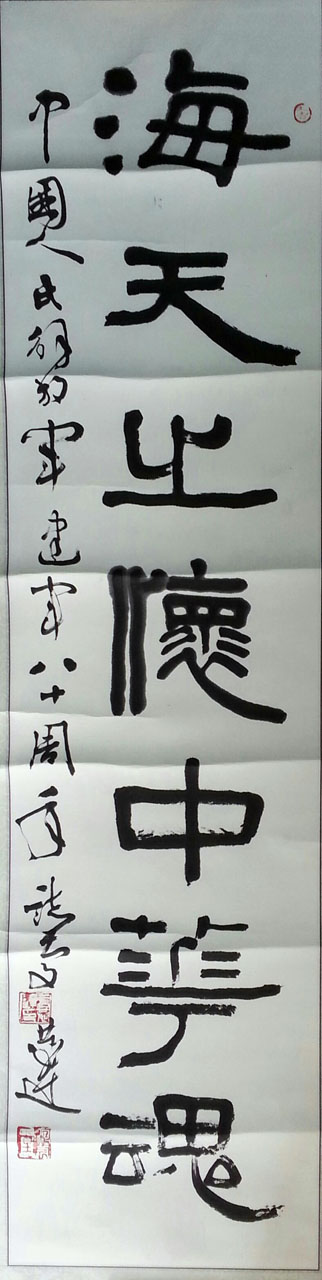 海天之懷中華魂
中國人民解放軍建軍八十周年誌慶